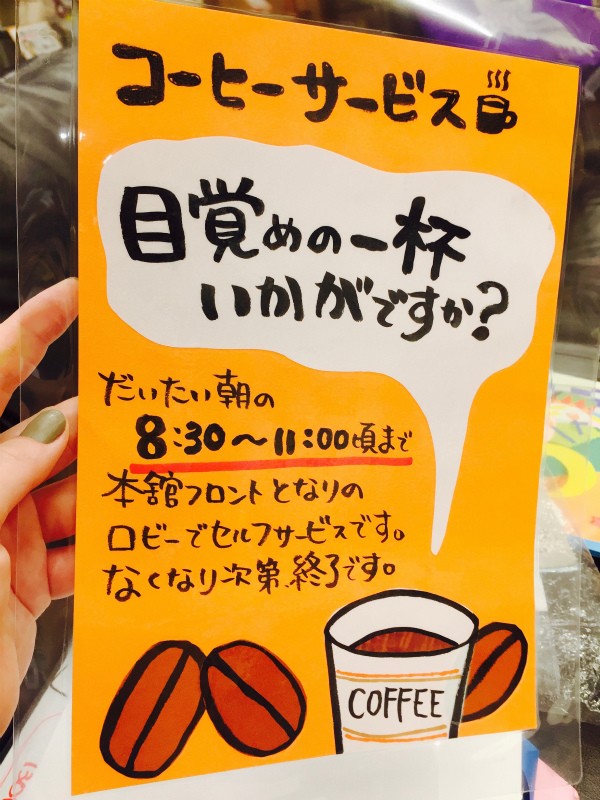 コーヒーサービス
目覚めの一杯
いかがですか?
だいたい朝の
8:30〜11:00頃まで
本舘フロントとなりの
ロビーでセルフサービスです。
なくなり次第、終了です。
COFFEE